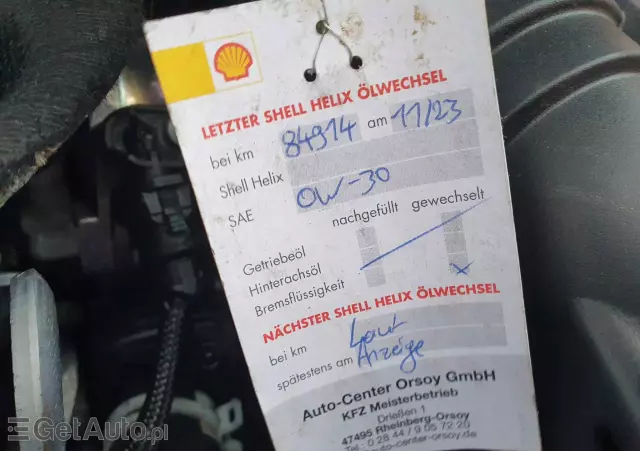 LETZTER SHELL HELIX ÖLWECHSEL
bei km 84914 am 11/23
Shell Helix
SAE 0W-30
nachgefüllt gewechselt
Getriebeöl
Hinterachsöl
Bremsflüssigkeit x
NÄCHSTER SHELL HELIX ÖLWECHSEL
bei km Laut
spätestens am Anzeige
Auto-Center Orsoy GmbH
KFZ Meisterbetrieb
Drießen 1
47495 Rheinberg-Orsoy
Tel. 0 28 44 / 9 05 72 20
auto-center-orsoy.de
GetAuto.pl